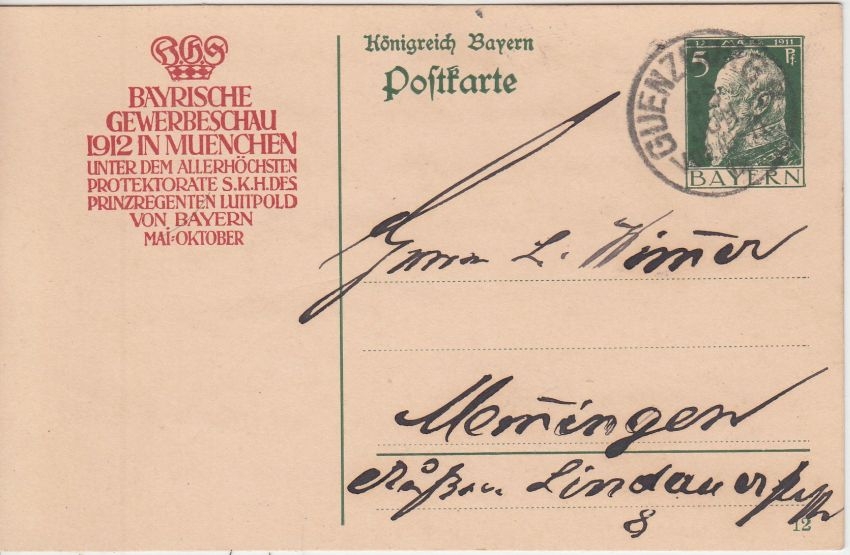 BGS
BAYRISCHE
GEWERBESCHAU
1912 IN MUENCHEN
UNTER DEM ALLERHÖCHSTEN
PROTEKTORATE S.K.H.DES
PRINZREGENTEN LUITPOLD
VON BAYERN
MAI-OKTOBER
Königreich Bayern
Postkarte
12 MÄRZ 1911
5 Pf.
BAYERN
Herrn L. Wimer
Memmingen
Äußere Lindauerstr
8
12